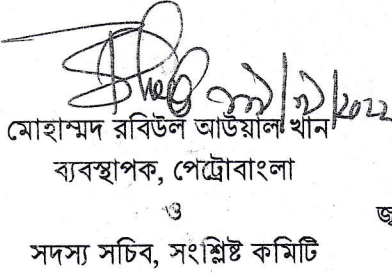 মোহাম্মদ রবিউল আউয়াল খান
ব্যবস্থাপক, পেট্রোবাংলা
ও
সদস্য সচিব, সংশ্লিষ্ট কমিটি